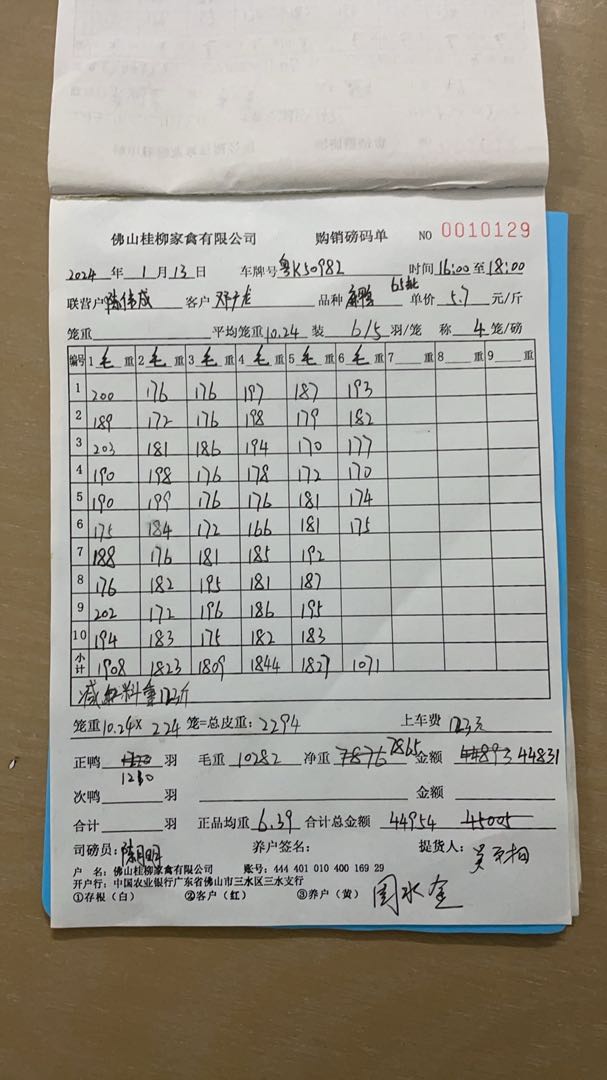 佛山桂柳家禽有限公司 购销磅码单 NO 0010129
2024 年 1 月 13 日 车牌号 粤K50982 时间 16:00 至 18:00
联营户 陈伟成 客户 邓广龙 品种 65批 单价 5.7 元/斤
笼重 平均笼重 10.24 装 6/5 羽/笼 称 4 笼/磅
编号 1 毛 重 2 毛 重 3 毛 重 4 毛 重 5 毛 重 6 毛 重 7 重 8 重 9 重
1 200 176 176 197 187 193
2 189 172 176 198 179 182
3 203 181 186 194 170 177
4 190 198 176 178 172 170
5 190 199 176 176 181 174
6 175 184 172 166 181 175
7 188 176 181 185 192
8 176 182 195 181 187
9 202 172 196 186 195
10 194 183 175 182 183
小计 1908 1823 1809 1844 1827 1071
减 料重 123斤
笼重 10.24 × 224 笼=总皮重: 2294 上车费 123元
正鸭 羽 毛重 10282 净重 7876 7865 金额 44893 44831
1230
次鸭 羽 金额
合计 羽 正品均重 6.39 合计总金额 44954 45005
司磅员: 陈月明 养户签名: 提货人:
户 名: 佛山桂柳家禽有限公司 账号: 444 401 010 400 169 29
开户行: 中国农业银行广东省佛山市三水区三水支行
①存根(白) ②客户(红) ③养户(黄) 周水金